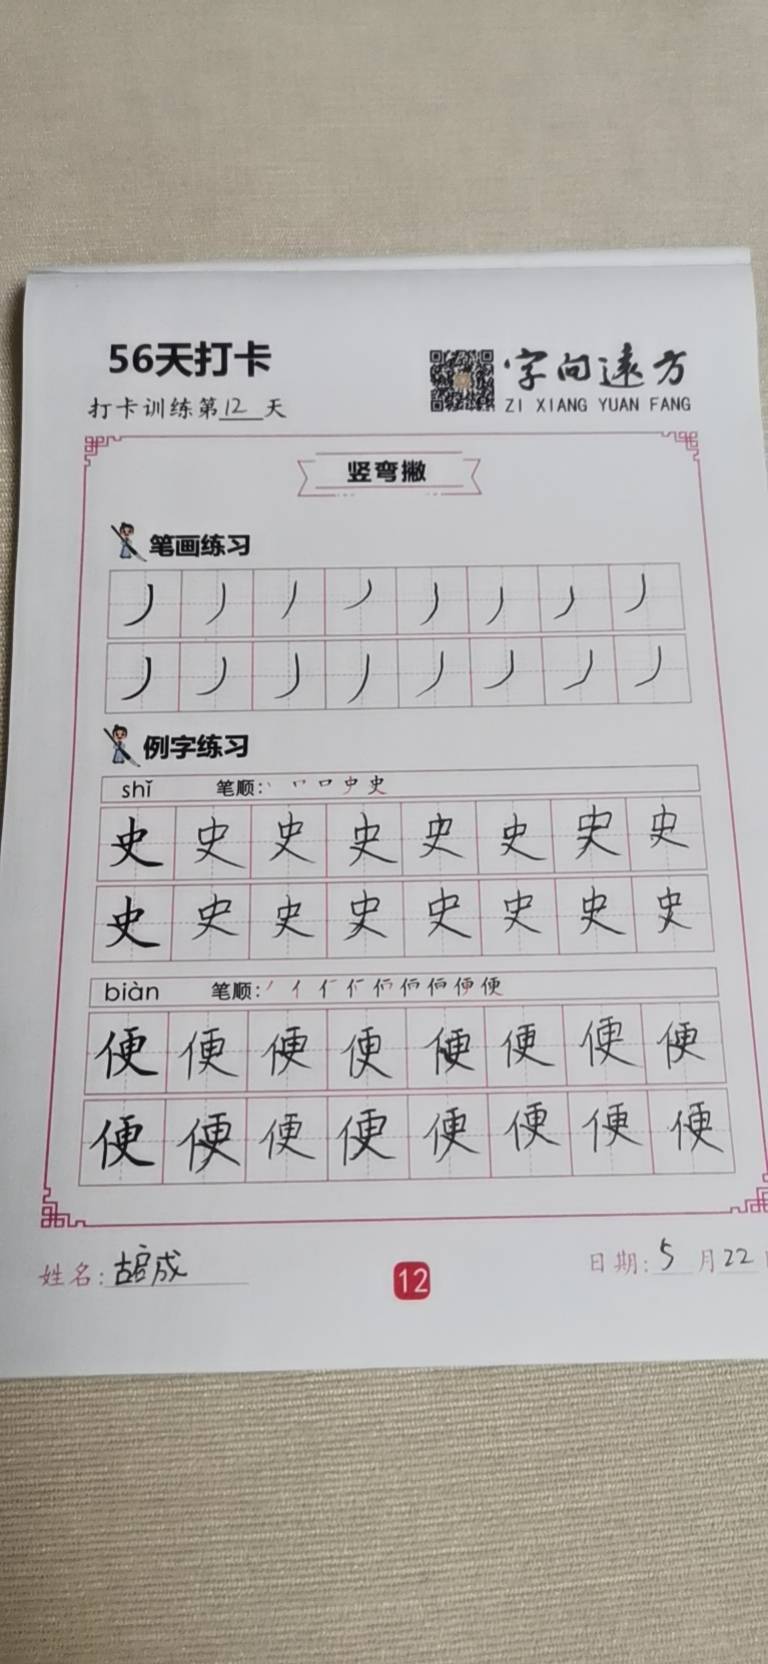 56天打卡
字向遠方
打卡训练第12天
ZI XIANG YUAN FANG
竖弯撇
笔画练习
丿丿丿丿丿丿丿丿
丿丿丿丿丿丿丿丿
例字练习
shǐ 笔顺: 丨 口 史
史史史史史史史史
史史史史史史史史
biàn 笔顺: 丿 亻 便
便便便便便便便便
便便便便便便便便
姓名: 成
12
日期: 5月22